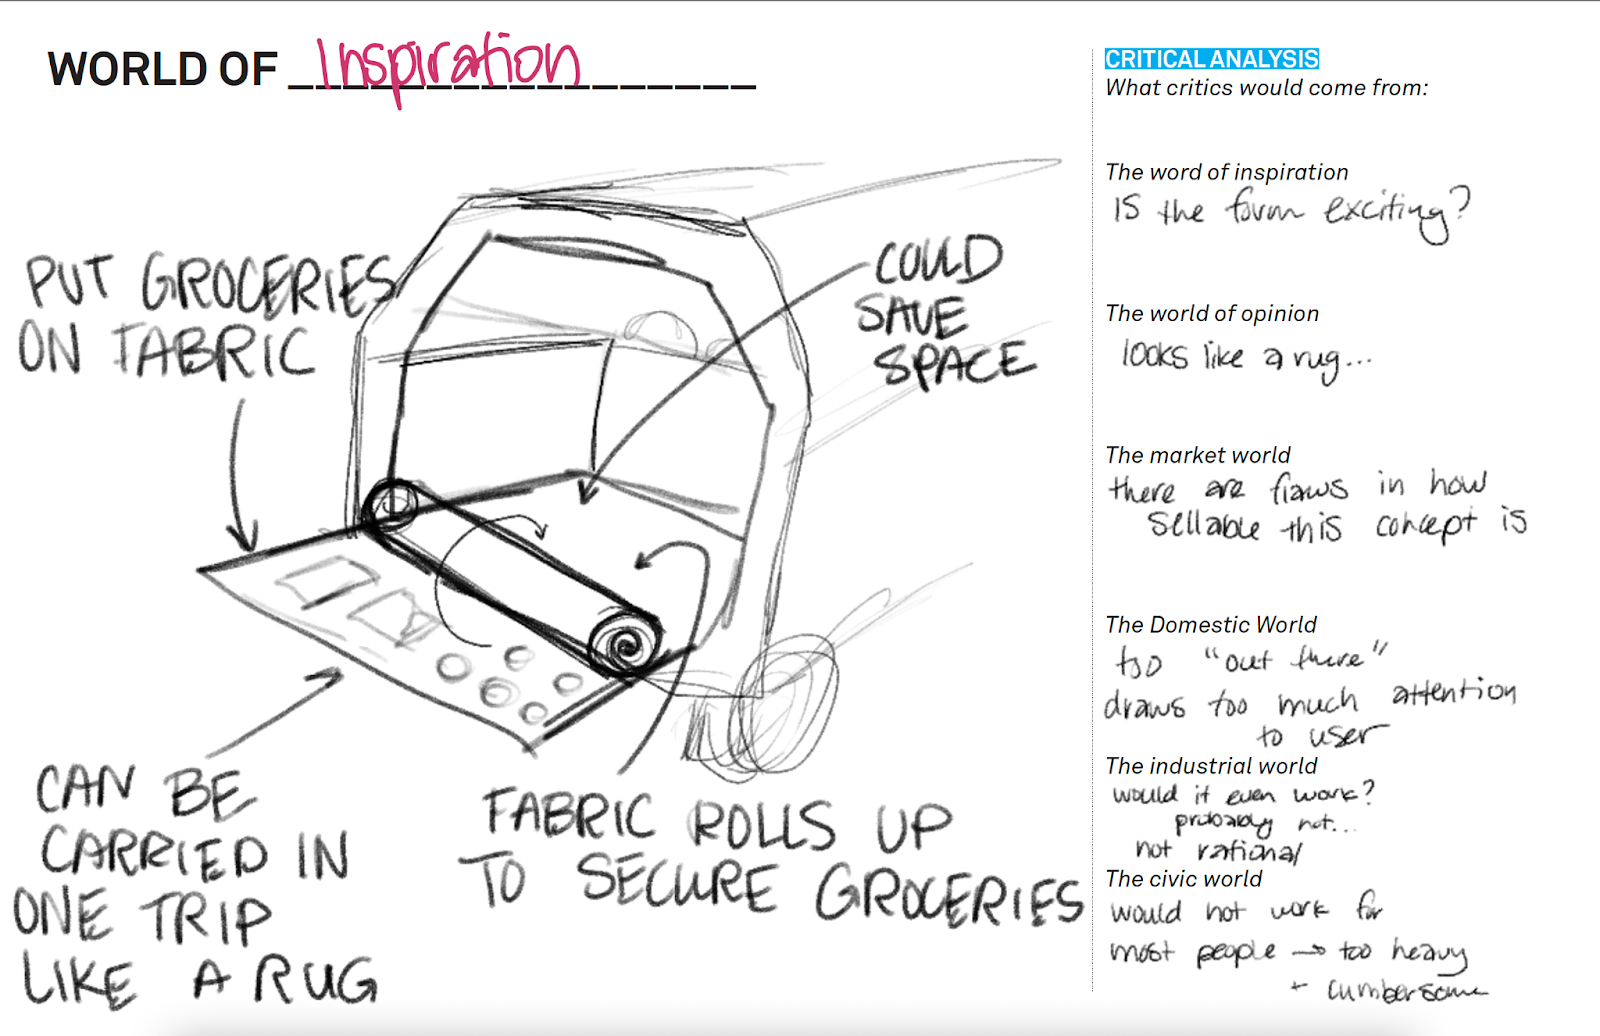 WORLD OF Inspiration
PUT GROCERIES
ON FABRIC
COULD
SAVE
SPACE
CAN BE
CARRIED IN
ONE TRIP
LIKE A RUG
FABRIC ROLLS UP
TO SECURE GROCERIES
CRITICAL ANALYSIS
What critics would come from:
The word of inspiration
IS the form exciting?
The world of opinion
looks like a rug...
The market world
there are flaws in how
sellable this concept is
The Domestic World
too "out there"
draws too much attention
to user
The industrial world
would it even work?
probably not...
not rational
The civic world
would not work for
most people → too heavy
+ cumbersome